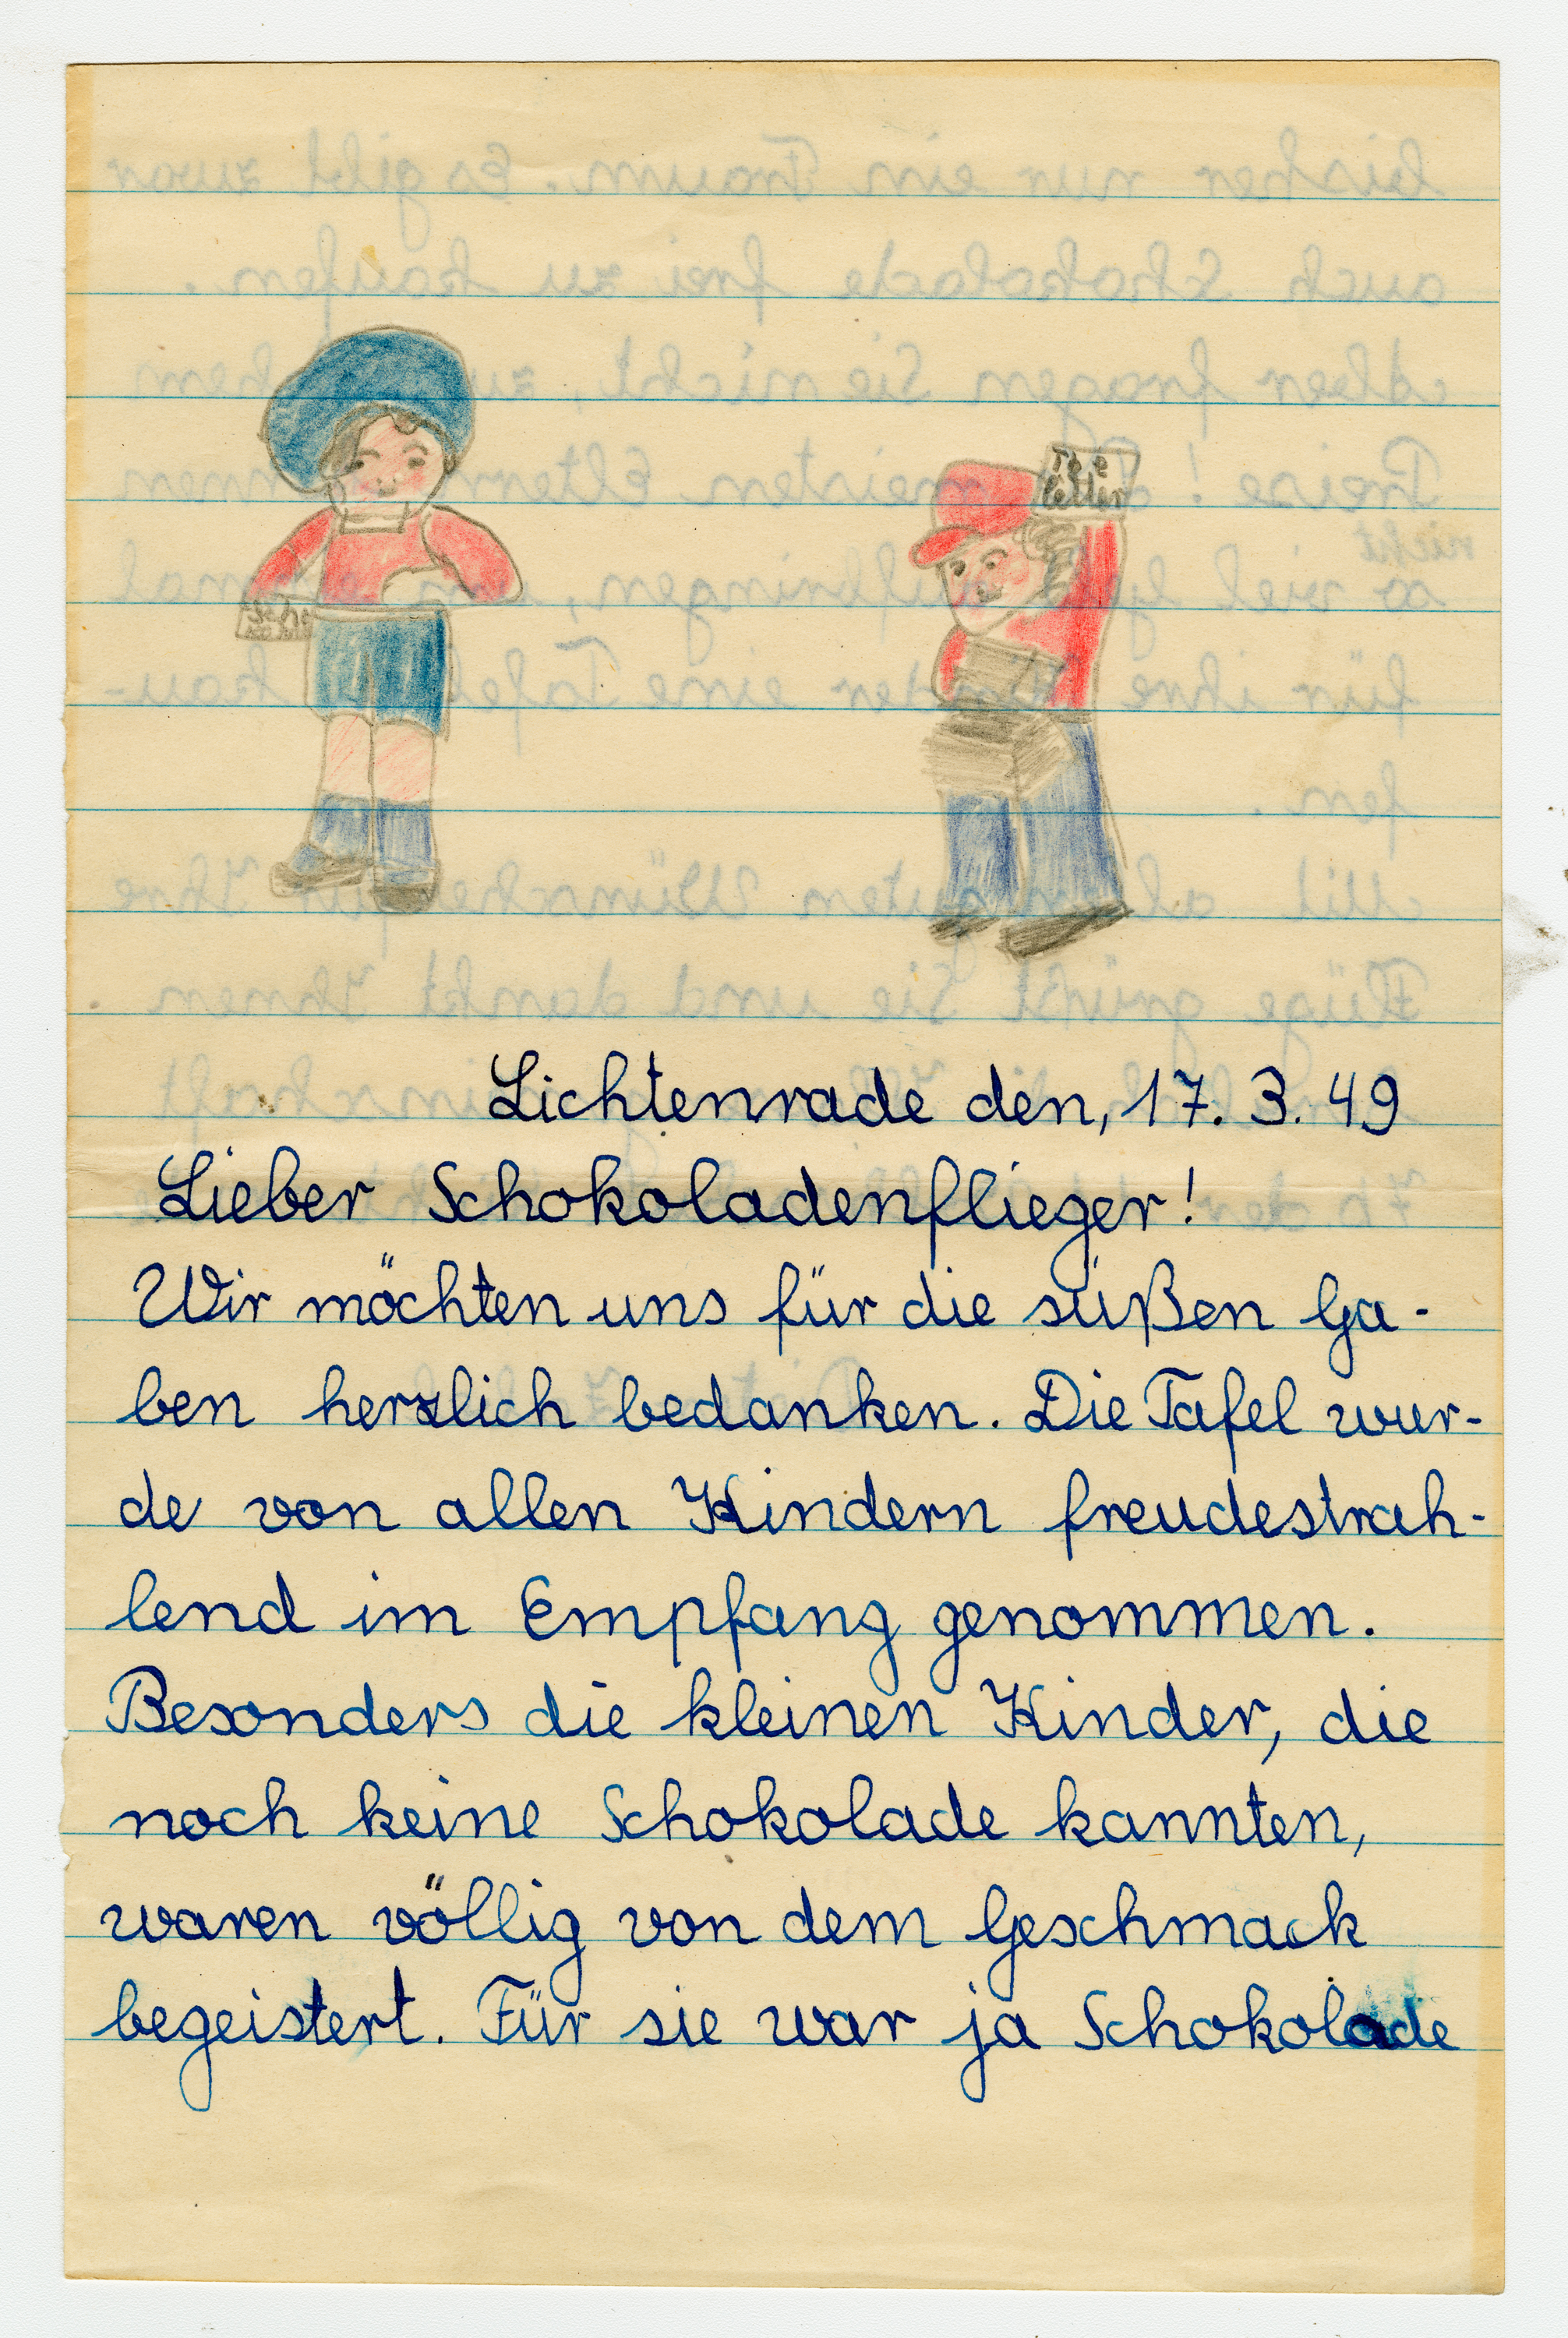 The
letter
Scho
Lichtenrade den, 17. 3. 49
Lieber Schokoladenflieger!
Wir möchten uns für die süßen Ga-
ben herzlich bedanken. Die Tafel wur-
de von allen Kindern freudestrah-
lend im Empfang genommen.
Besonders die kleinen Kinder, die
noch keine Schokolade kannten,
waren völlig von dem Geschmack
begeistert. Für sie war ja Schokolade